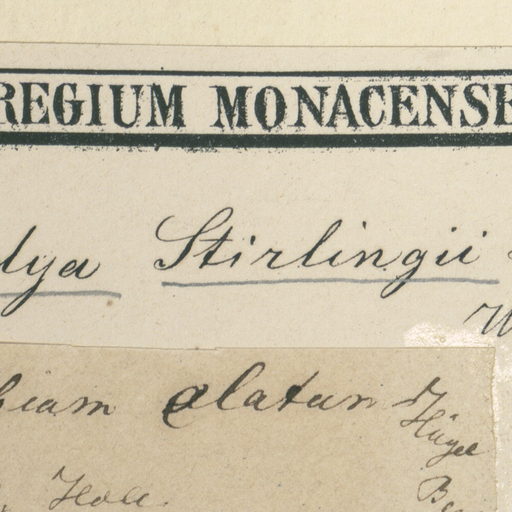 REGIUM MONACENSE
lya Stirlingii
W
biam alatum
Hügel
Holl.
B